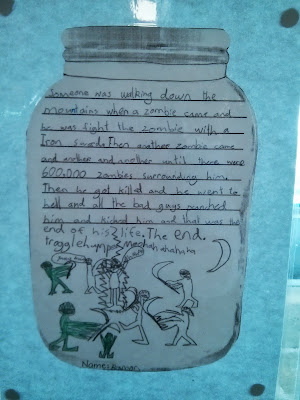 Someone was walking down the
mountains when a zombie came and
he was fight the zombie with a
Iron sword. Then another zombie came
and another and another until there were
600.000 zombies surrounding him.
Then he got killed and he went to
hell and all the bad guys punched
him and kicked him and that was the
end of his life. The end.
hahahaha
Name: